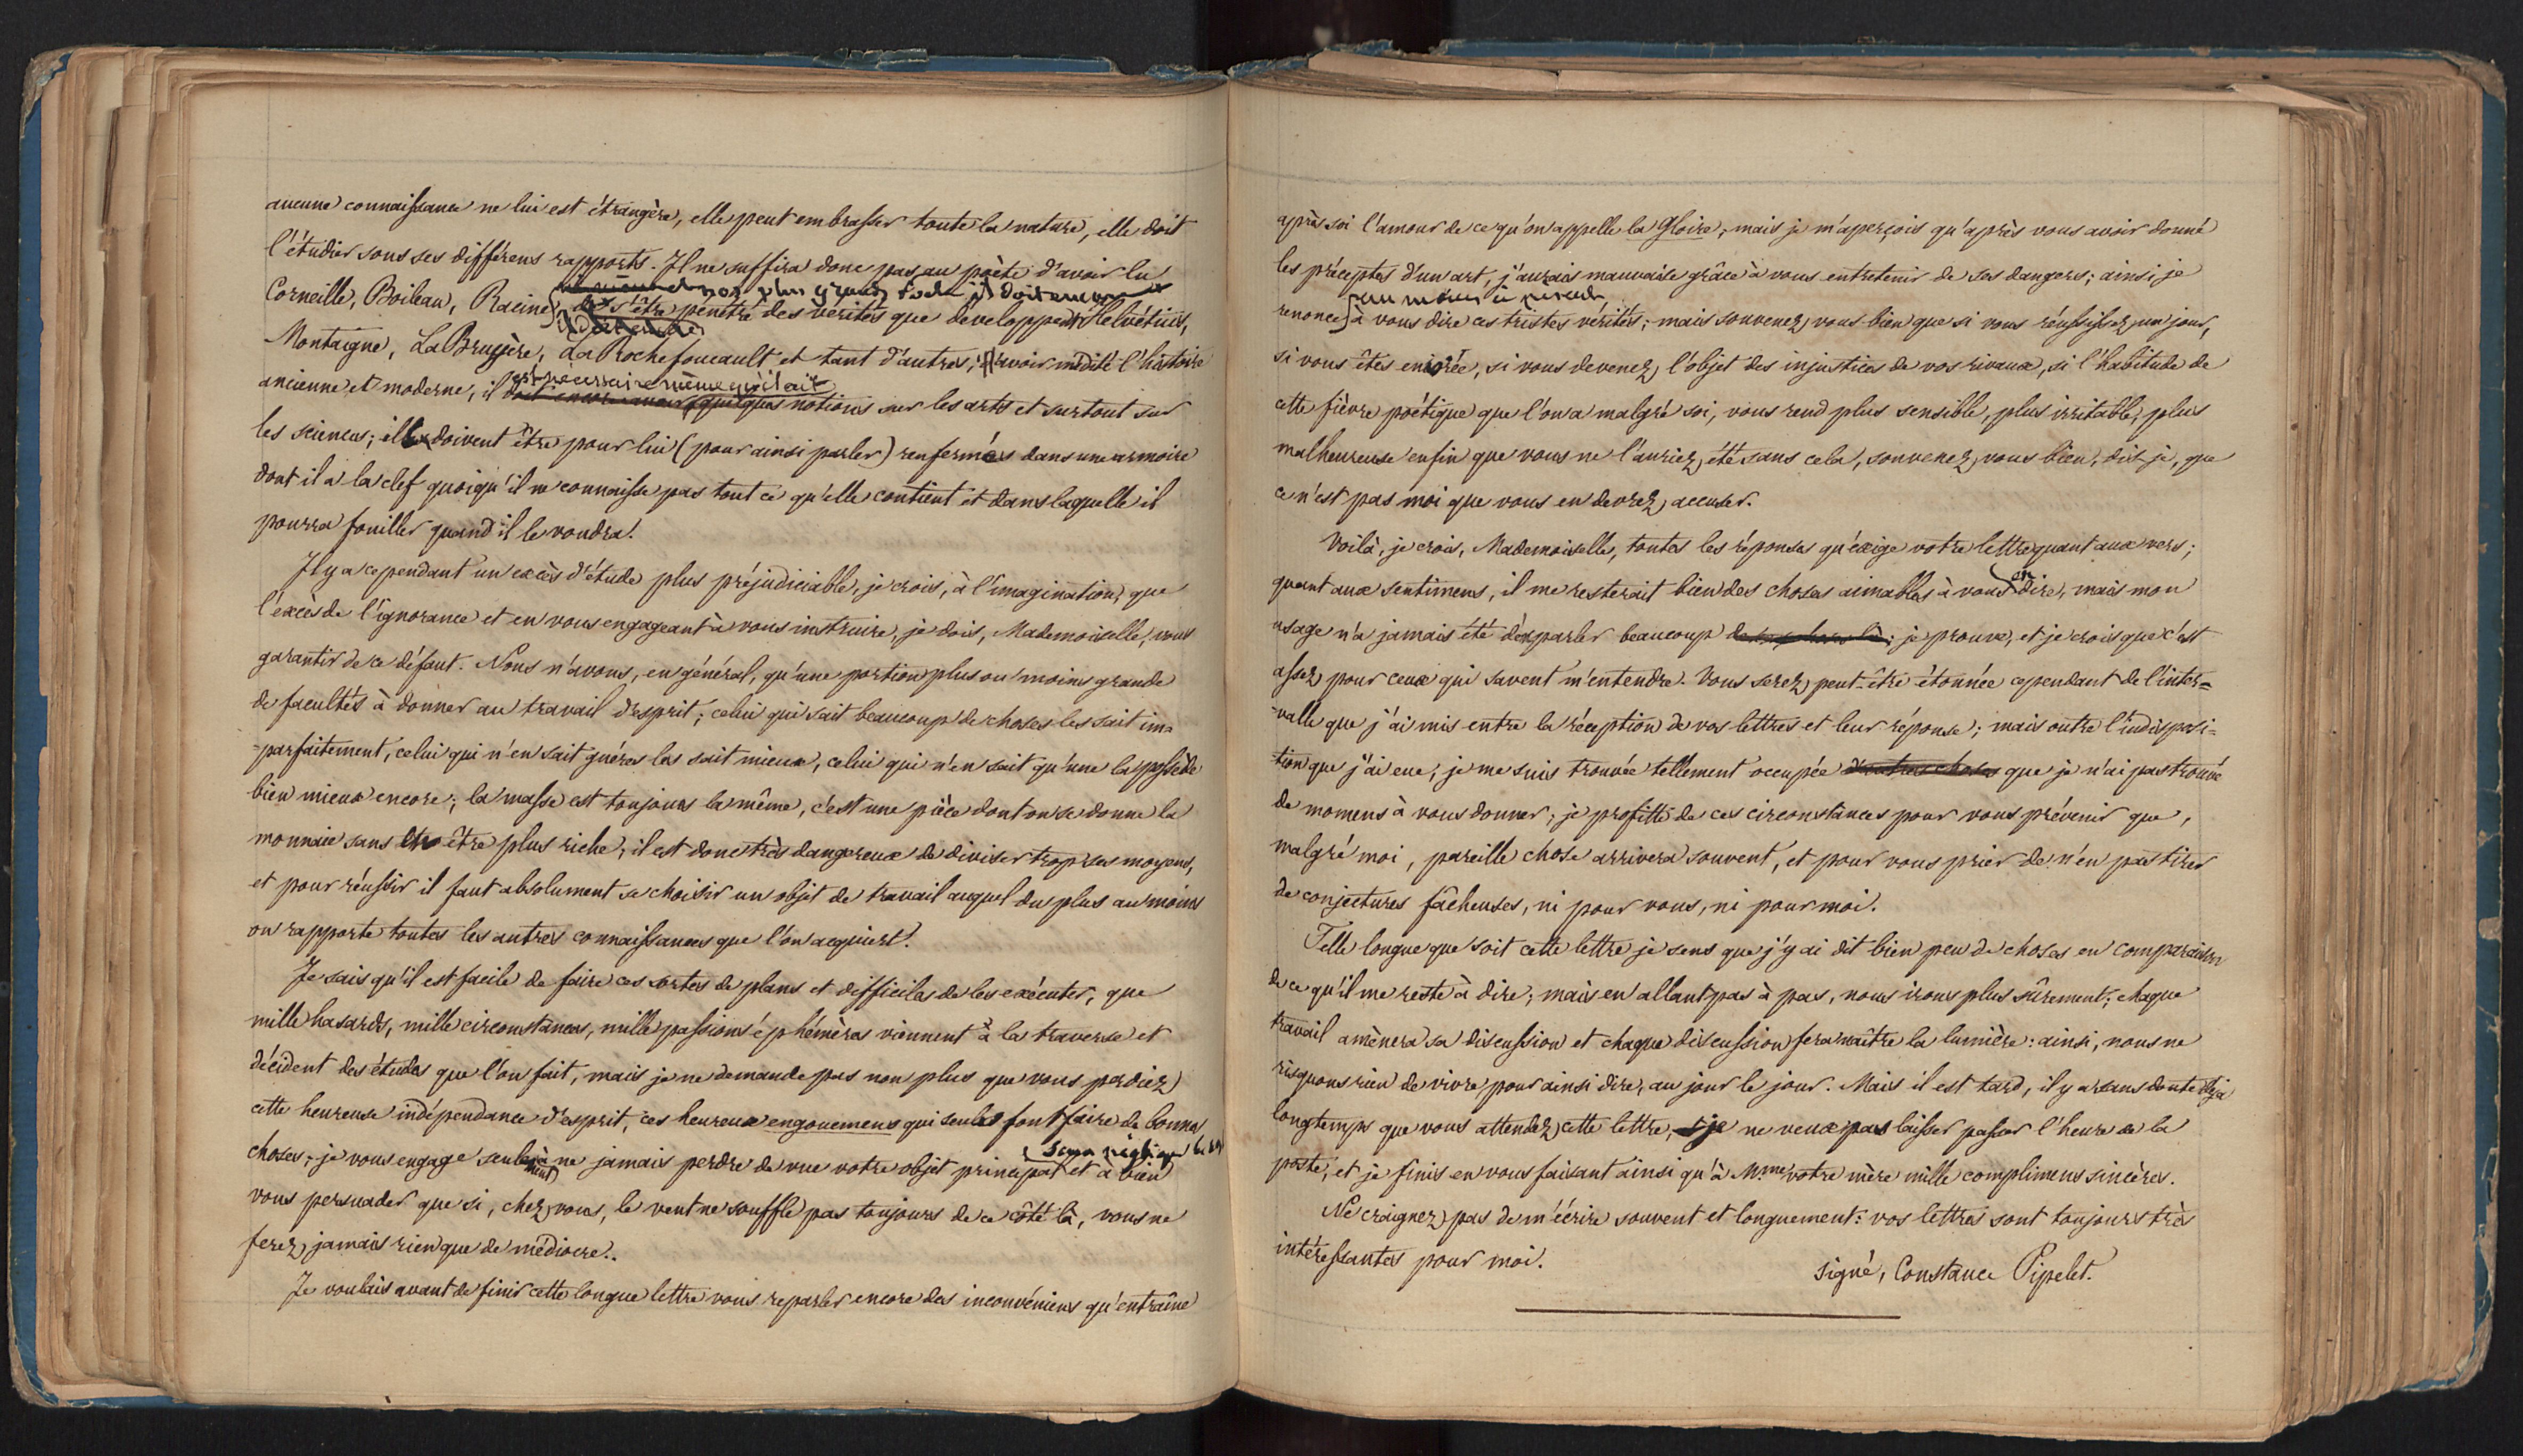 aucune connaissance ne lui est étrangère, elle peut embrasser toute la nature, elle doit
l'étudier sous ses différens rapports. Il ne suffira donc pas au poète d'avoir lu
nos plus grands il doit encore
Corneille, Boileau, Racine, s'être pénétré des vérités que développent Helvétius,
Montaigne, La Bruyère, La Rochefoucault et tant d'autres, avoir médité l'histoire
est nécessaire même qu'il ait
ancienne et moderne, il doit encore avoir quelques notions sur les arts et surtout sur
les sciences; ils doivent être pour lui (pour ainsi parler) renfermés dans une armoire
dont il a la clef quoiqu'il ne connaisse pas tout ce qu'elle contient et dans laquelle il
pourra fouiller quand il le voudra.
Il y a cependant un excès d'étude plus préjudiciable, je crois, à l'imagination, que
l'excès de l'ignorance et en vous engageant à vous instruire, je dois, Mademoiselle, vous
garantir de ce défaut. Nous n'avons, en général, qu'une portion plus ou moins grande
de facultés à donner au travail d'esprit; celui qui sait beaucoup de choses les sait im=
=parfaitement, celui qui n'en sait guères les sait mieux, celui qui n'en sait qu'une la possède
bien mieux encore; la masse est toujours la même, c'est une pièce dont on se donne la
monnaie sans être plus riche; il est donc très dangereux de diviser trop ses moyens,
et pour réussir il faut absolument se choisir un objet de travail auquel du plus au moins
on rapporte toutes les autres connaissances que l'on acquiert.
Je sais qu'il est facile de faire ces sortes de plans et difficile de les exécuter, que
mille hasards, mille circonstances, mille passions éphémères viennent à la traverse et
décident des études que l'on fait, mais je ne demande pas non plus que vous perdiez
cette heureuse indépendance d'esprit, ces heureux engouemens qui seuls font faire de bonnes
sans négliger
choses; je vous engage seulement à ne jamais perdre de vue votre objet principal et à bien
vous persuader que si, chez vous, le vent ne souffle pas toujours de ce côté là, vous ne
ferez jamais rien que de médiocre..
Je voulais avant de finir cette longue lettre vous reparler encore des inconvéniens qu'entraîne
après soi l'amour de ce qu'on appelle la Gloire, mais je m'aperçois qu'après vous avoir donné
les préceptes d'un art, j'aurais mauvaise grâce à vous entretenir de ses dangers; ainsi je
au moins
renonce à vous dire ces tristes vérités; mais souvenez vous bien que si vous réussissez un jour,
si vous êtes enivrée, si vous devenez l'objet des injustices de vos rivaux, si l'habitude de
cette fièvre poétique que l'on a malgré soi, vous rend plus sensible, plus irritable, plus
malheureuse enfin que vous ne l'auriez été sans cela, souvenez vous bien, dis-je, que
ce n'est pas moi que vous en devrez accuser.
Voilà, je crois, Mademoiselle, toutes les réponses qu'exige votre lettre quant aux vers;
quant aux sentimens, il me resterait bien des choses aimables à vous en dire, mais mon
usage n'a jamais été d'en parler beaucoup je prouve, et je crois que c'est
assez pour ceux qui savent m'entendre. Vous serez peut-être étonnée cependant de l'inter=
=valle que j'ai mis entre la réception de vos lettres et leur réponse; mais outre l'indisposi=
tion que j'ai eue, je me suis trouvée tellement occupée d'autres choses que je n'ai pas trouvé
de momens à vous donner; je profitte de ces circonstances pour vous prévenir que,
malgré moi, pareille chose arrivera souvent, et pour vous prier de n'en pas tirer
de conjectures fâcheuses, ni pour vous, ni pour moi.
Telle longue que soit cette lettre je sens que j'y ai dit bien peu de choses en comparaison
de ce qu'il me reste à dire; mais en allant pas à pas, nous irons plus sûrement; chaque
travail amènera sa discussion et chaque discussion fera naître la lumière: ainsi, nous ne
risquons rien de vivre, pour ainsi dire, au jour le jour. Mais il est tard, il y a sans doute déjà
longtemps que vous attendez cette lettre, je ne veux pas laisser passer l'heure de la
poste, et je finis en vous faisant ainsi qu'à Mme votre mère mille complimens sincères.
Ne craignez pas de m'écrire souvent et longuement: vos lettres sont toujours très
intéressantes pour moi.
Signé, Constance Pipelet.